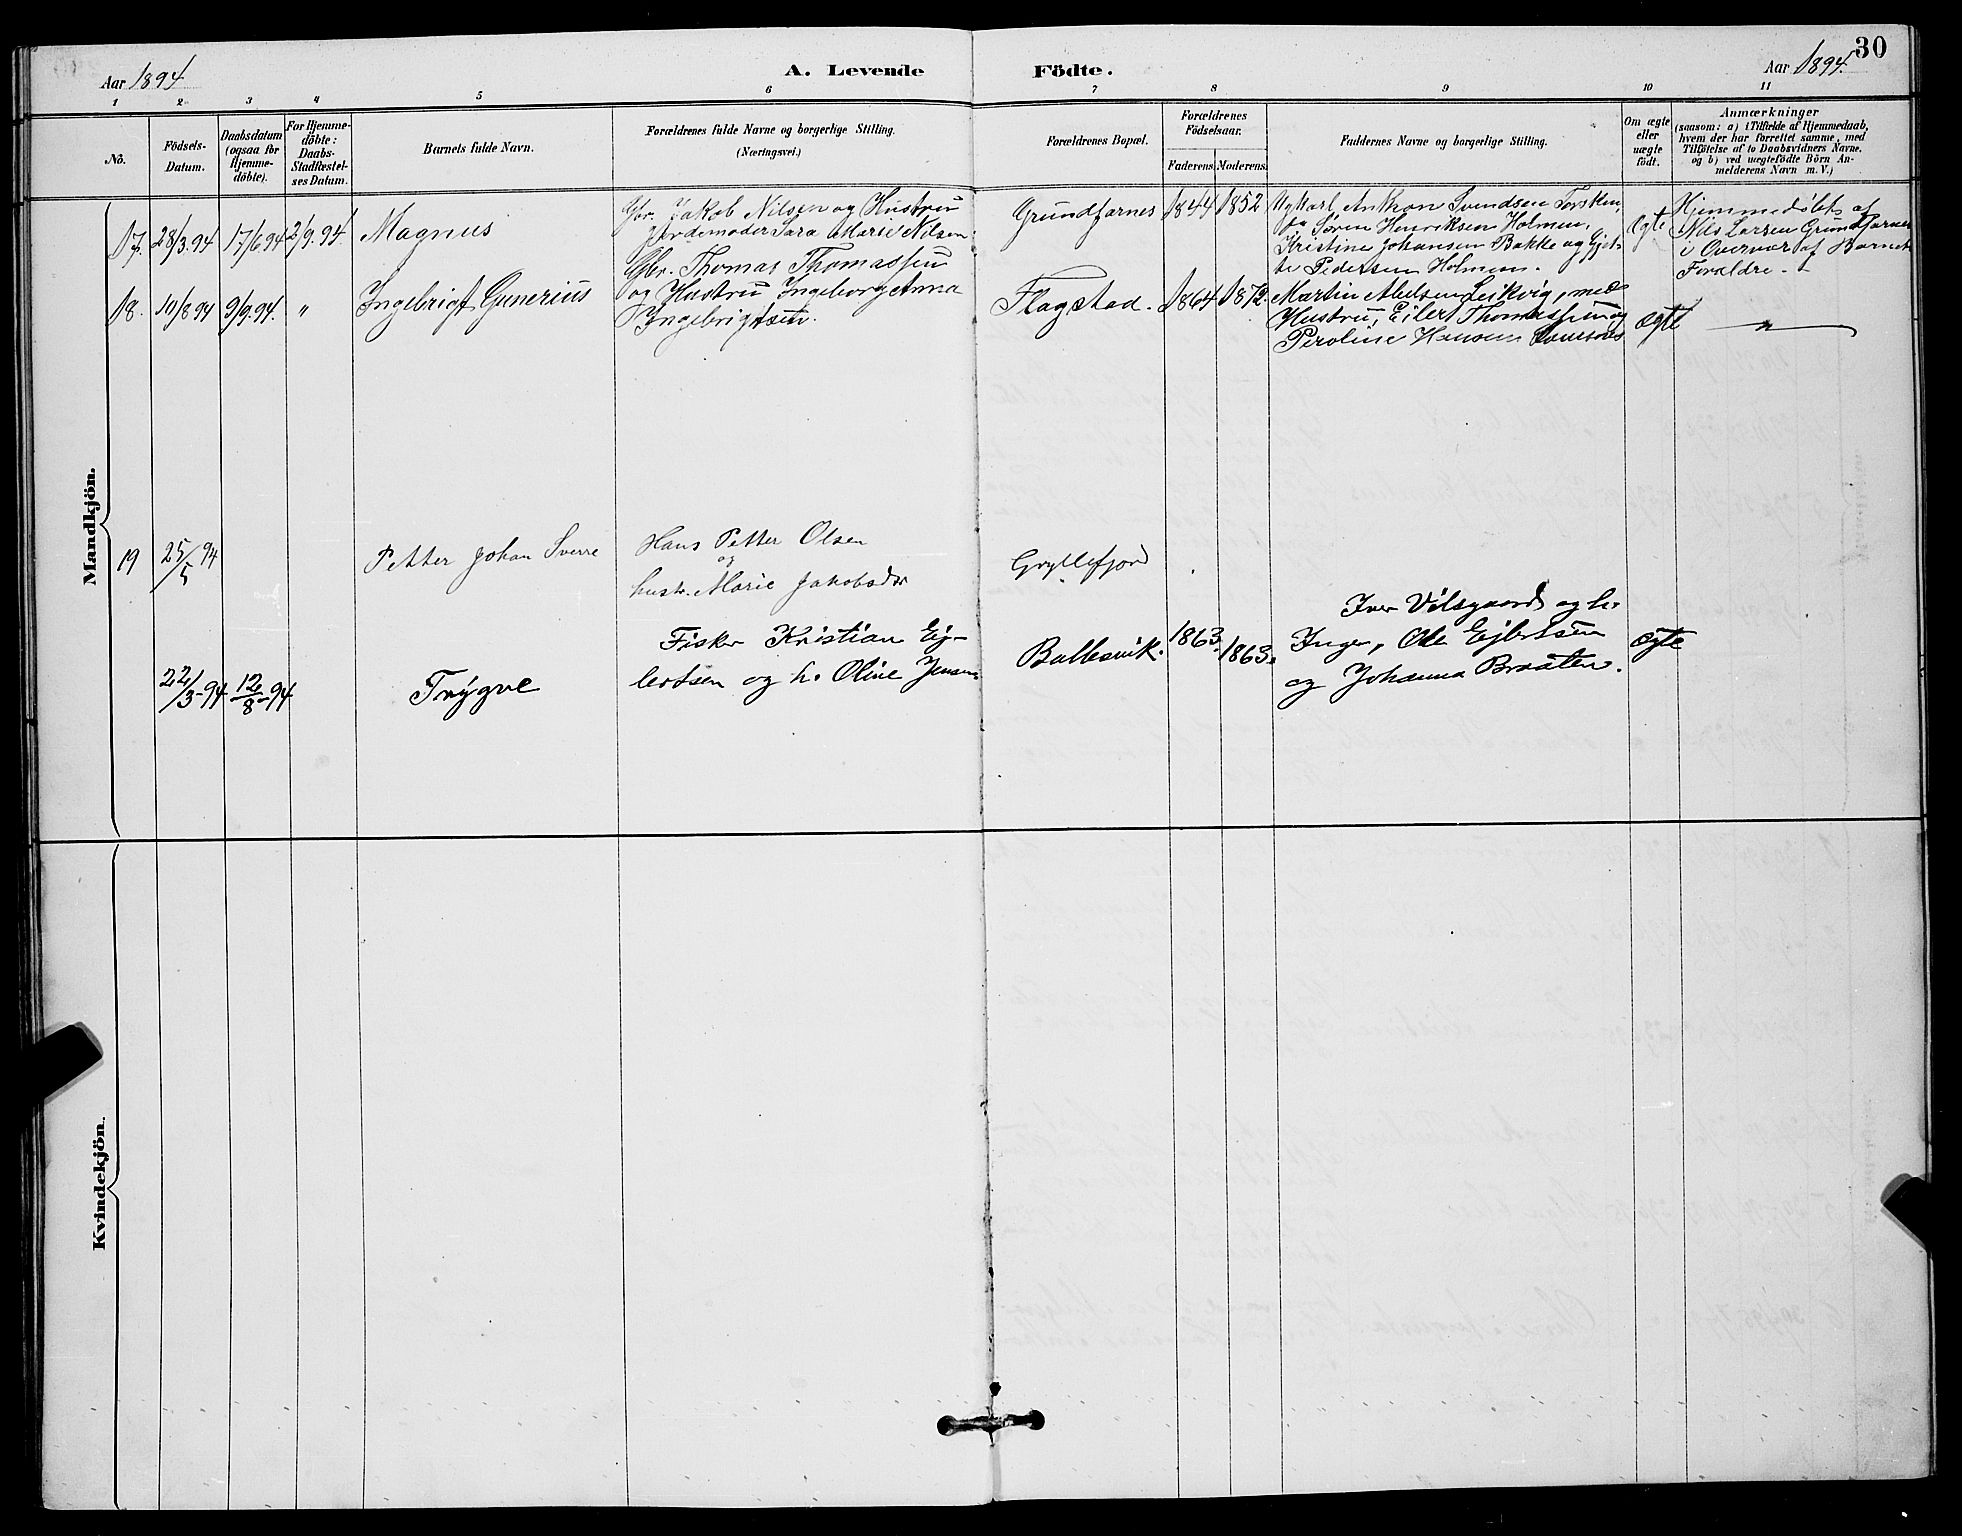 30
Aar 1894
A. Levende Födte.
Aar 1894.
1 2 3 4 5 6 7 8 9 10 11
No.
Födsels-
Datum.
Daabsdatum
(ogsaa för
Hjemme-
döbte).
For Hjemme-
döbte:
Daabs-
Stadfæstel-
ses Datum.
Barnets fulde Navn.
Forældrenes fulde Navne og borgerlige Stilling.
(Næringsvei.)
Forældrenes Bopæl.
Forældrenes
Födselsaar.
Faderens. Moderens.
Faddernes Navne og borgerlige Stilling.
Om ægte
eller
uægte
födt.
Anmærkninger
(saasom: a) i Tilfælde af Hjemmedaab,
hvem der har forrettet samme, med
Tilföielse af to Daabsvidners Navne.
og b) ved uægtefödte Börn An-
melderens Navn m. V.)
Mandkjön.
17. 28/3.94 17/6 94 2/9.94. Magnus
Gbr. Jakob Nilsen og Hustru
Jordemoder Sara Marie Nilsen.
Grundfarnes 1844 1852
Karl Anthon Svendsen Torsken,
Søren Henriksen Holmen,
Kristine Johansen Bakke og Gjer-
Pedersen Holmen.
Ægte
Hjemmedøbt af
Nils Larsen Grundfarnes
i Overvær af Barnets
Forældre.
18. 10/8 94 9/9.94. " Ingebrigt Gunerius
Gbr. Thomas Thomassen
og Hustru Ingeborg Anna
Ingebrigtsen.
Flagstad. 1864 1872.
Martin Abelsen Leikvig, med
Hustru, Eilert Thomassen og
Peroline Hansen
ægte "
19 25/5 94 Petter Johan Sverre
Hans Petter Olsen
og
hustr. Marie Jakobsdr
Gryllefjord
22/3-94 12/8-94 Trygve
Fisker Kristian Ej-
lertsen og h. Oline Jensen
Ballesvik. 1863. 1863.
Iver Vilsgaard og h.
Inger, Ole Ejlertsen
og Johanna Braaten.
ægte
Kvindekjön.